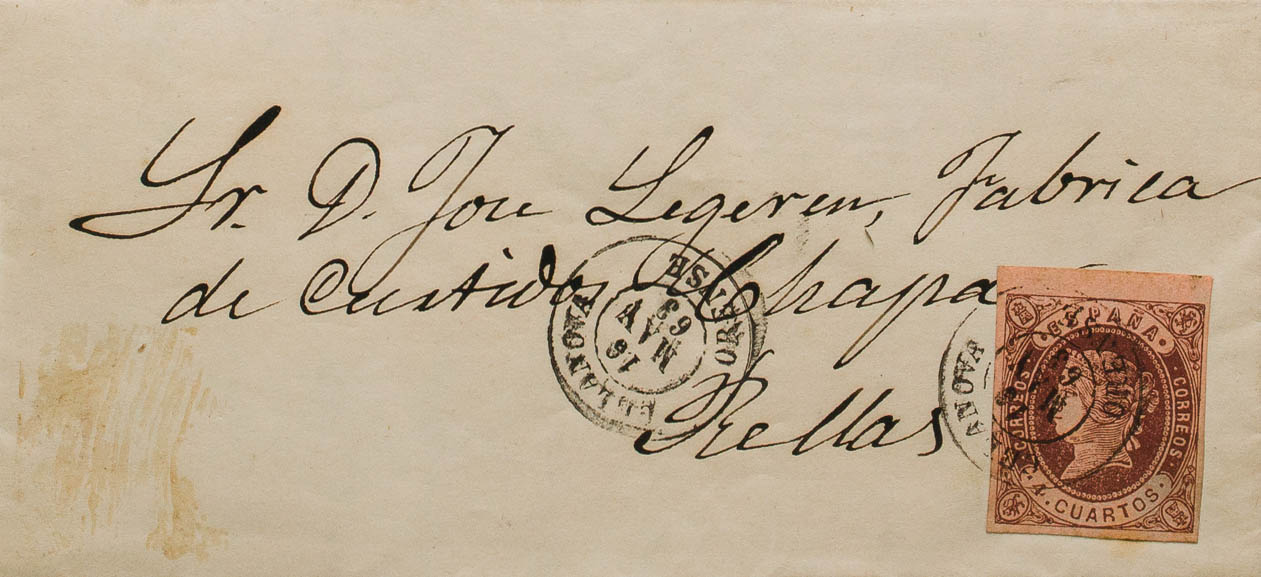 Sr. D. Jose Legeren, Fabrica
de Curtidos Chapa
Rellas
ELLANOVA
ORENSE
16
MAY
63
ESPAÑA
CORREOS
CORREOS
4. CUARTOS.